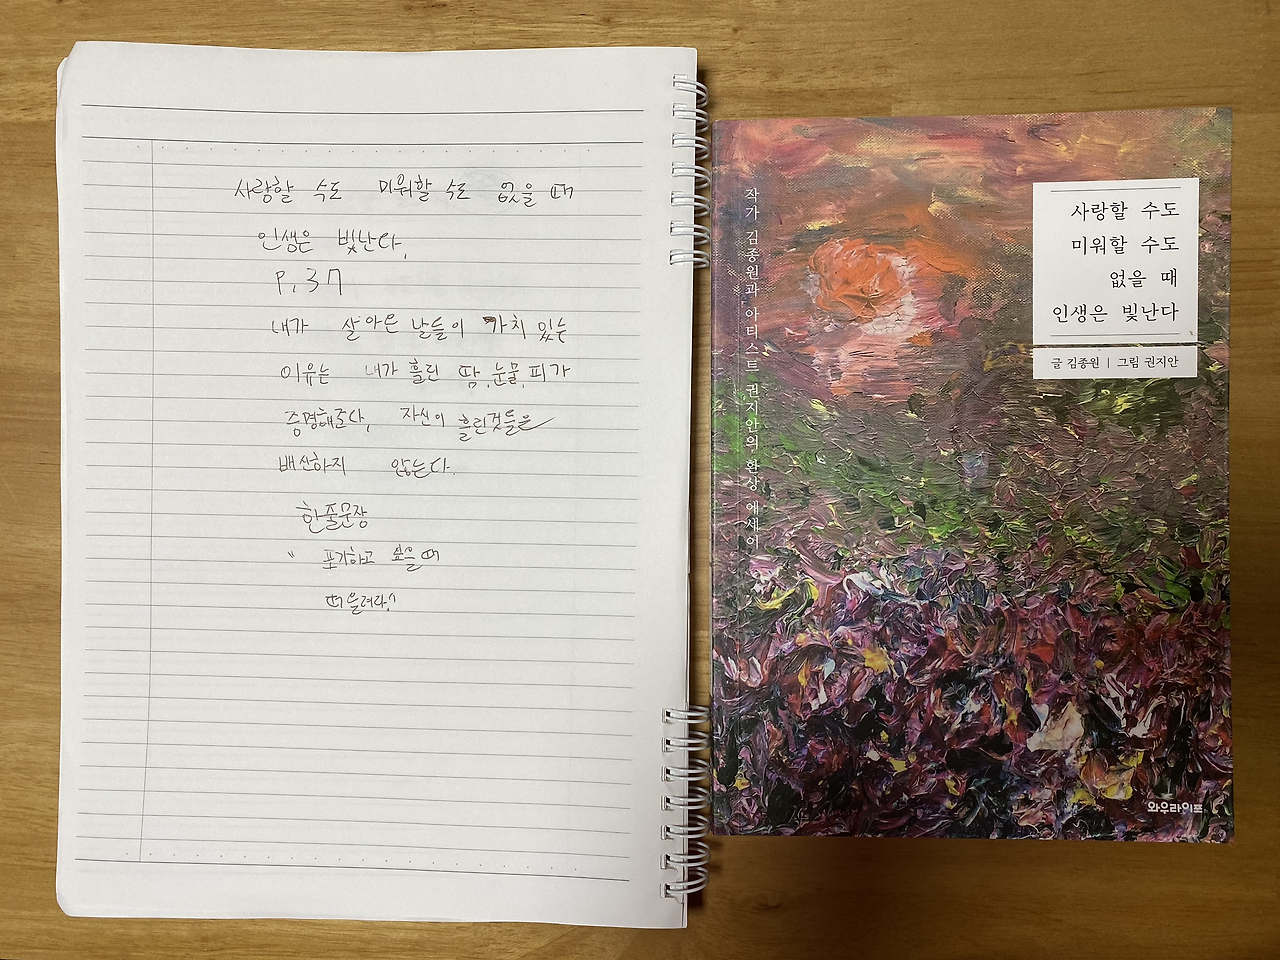 사랑할 수도 미워할 수도 없을 때
인생은 빛난다,
P. 37
내가 살아온 날들이 가치 있는
이유는 내가 흘린 땀, 눈물, 피가
증명해준다, 자신이 흘린것들은
배신하지 않는다.
한줄문장
" 포기하고 싶을 때
떠올려라."
작가 김종원과 아티스트 권지안의 환상 에세이
사랑할 수도
미워할 수도
없을 때
인생은 빛난다
글 김종원 | 그림 권지안
와우라이프